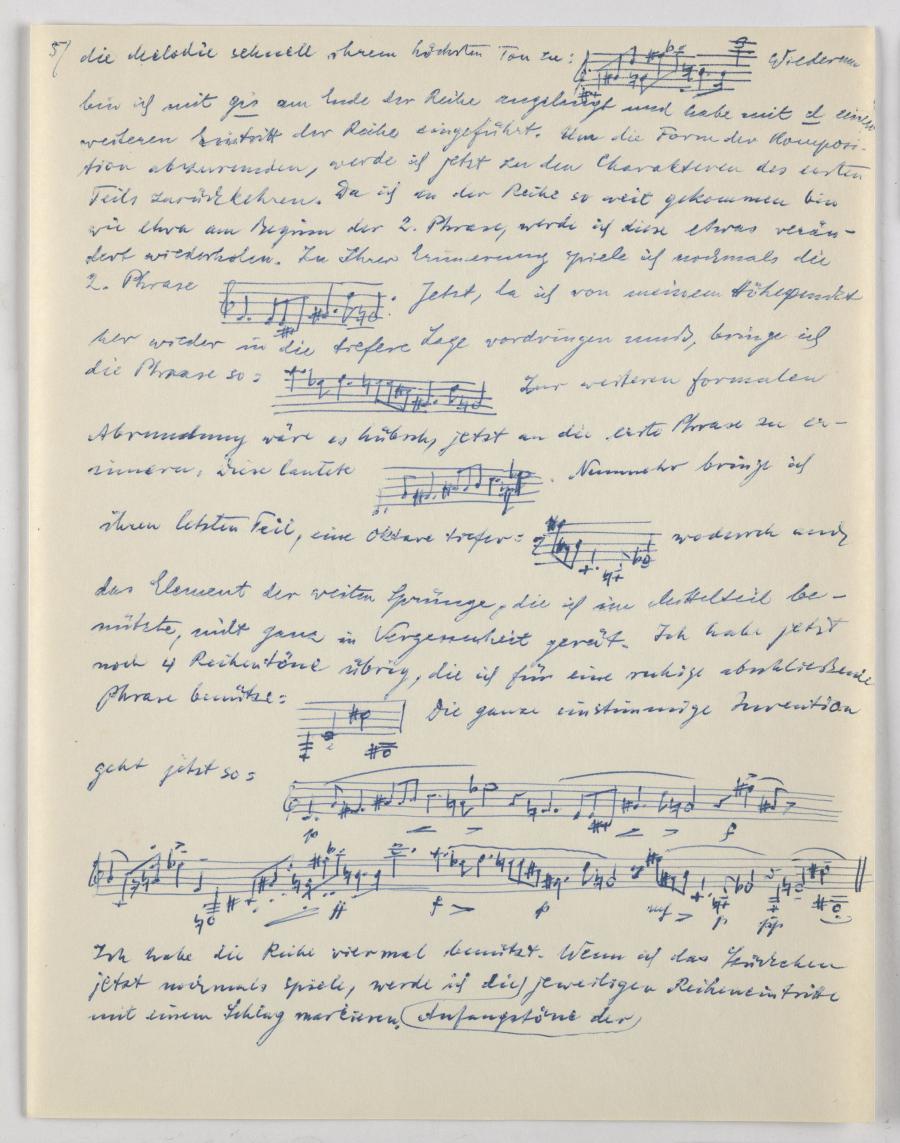 5/ die Melodie schnell ihrem höchsten Ton zu: Wiederum
bin ich mit gis am Ende der Reihe angelangt und habe mit d einen
weiteren Eintritt der Reihe eingeführt. Um die Form der Komposi-
tion abzurunden, werde ich jetzt zu den Charakteren des ersten
Teils zurückkehren. Da ich in der Reihe so weit gekommen bin
wie etwa am Beginn der 2. Phrase, werde ich diese etwas verän-
dert wiederholen. Zu Ihrer Erinnerung spiele ich nochmals die
2. Phrase : Jetzt, da ich von meinem Höhepunkt
her wieder in die tiefere Lage vordringen muß, bringe ich
die Phrase so: Zur weiteren formalen
Abrundung wäre es hübsch, jetzt an die erste Phrase zu er-
innern; diese lautete . Nunmehr bringe ich
ihren letzten Teil, eine Oktave tiefer: wodurch auch
das Element der weiten Sprünge, die ich im Mittelteil be-
nützte, nicht ganz in Vergessenheit gerät. Ich habe jetzt
noch 4 Reihentöne übrig, die ich für eine ruhige abschließende
Phrase benütze: Die ganze einstimmige Invention
geht jetzt so:
p < > < > f
ff f > p mf > p pp
Ich habe die Reihe viermal benützt. Wenn ich das Stückchen
jetzt nochmals spiele, werde ich die jeweiligen Reiheneintritte
mit einem Schlag markieren. (Anfangstöne der)